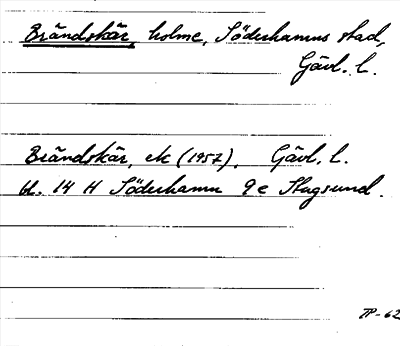 Brändskär, holme, Söderhamns stad,
Gävl. l.
Brändskär, ek (1957), Gävl. l.
bl. 14 H Söderhamn 9e Flugsund.
TP-62